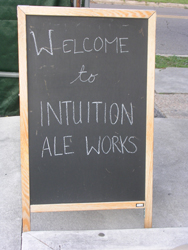 WELCOME
to
INTUITION
ALE WORKS